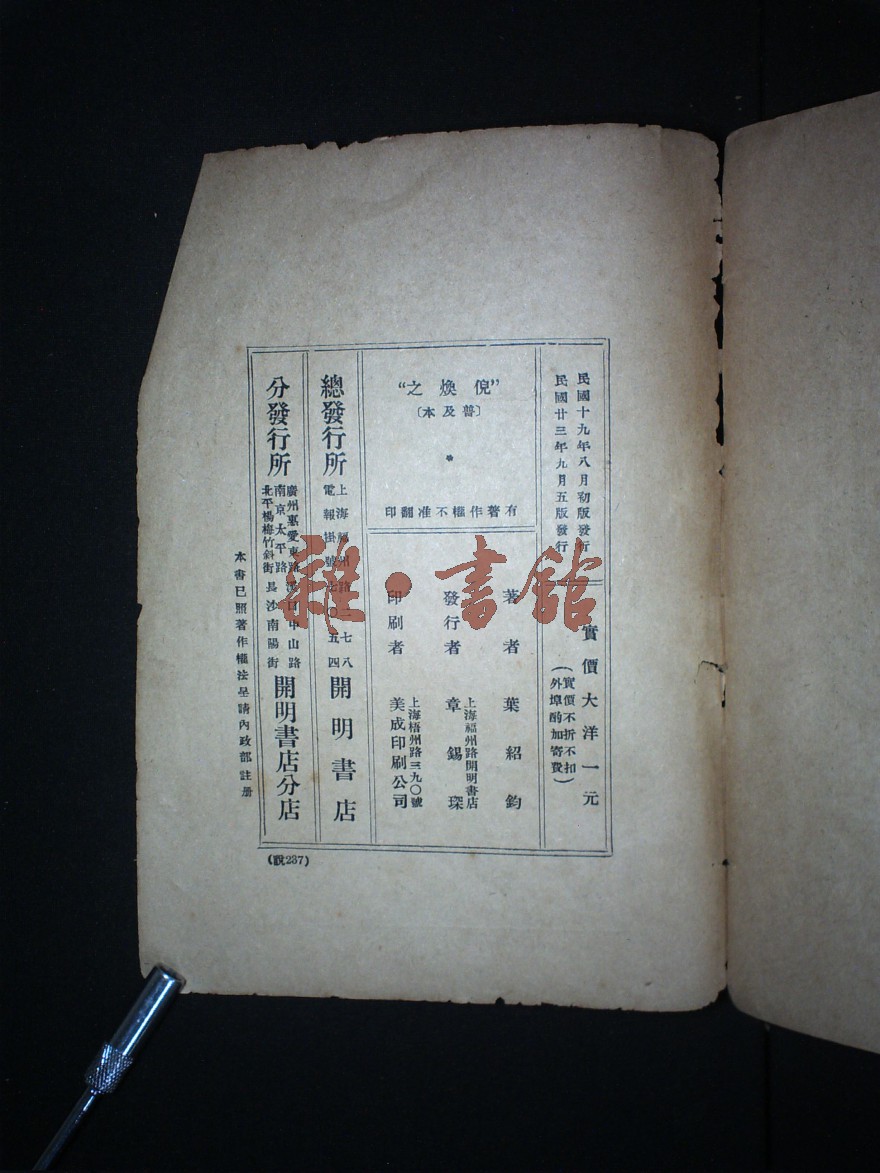 民國十九年八月初版發行
民國廿三年九月五版發行
實價大洋一元
(實價不折不扣
外埠酌加寄費)
”倪煥之“
〔普及本〕
有著作權不准翻印
著者 葉紹鈞
發行者 上海福州路開明書店
章錫琛
印刷者 上海梧州路三九〇號
美成印刷公司
總發行所 上海福州路二七八
電報掛號七〇五四
開明書店
分發行所 廣州惠愛東路 漢口中山路
南京太平路
北平楊梅竹斜街 長沙南陽街
開明書店分店
本書已照著作權法呈請內政部註册
(說237)
雜·書館